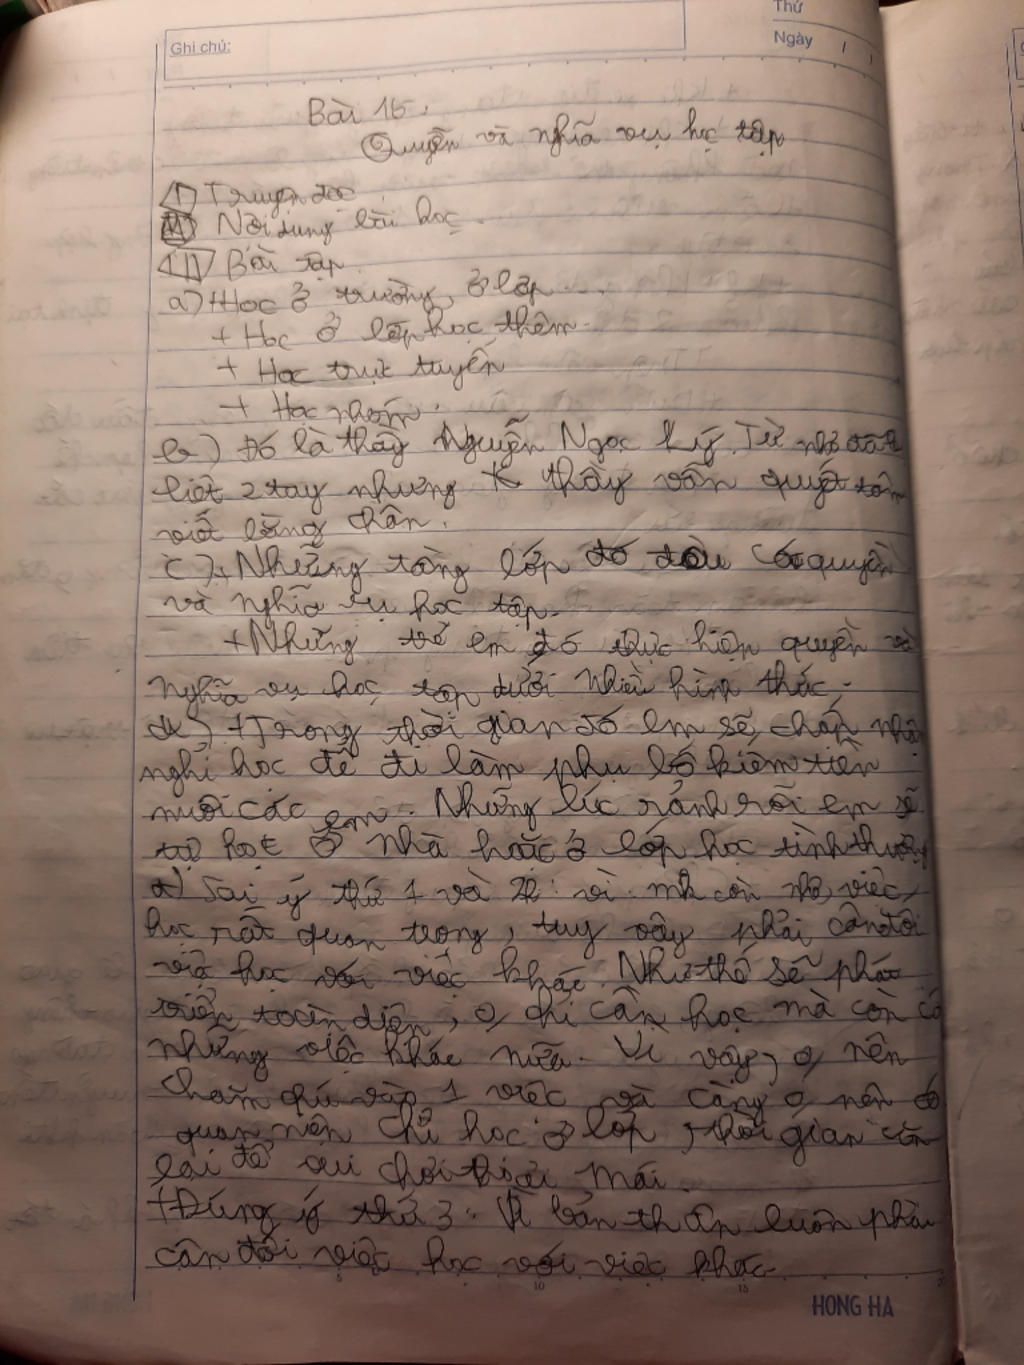 Ghi chú:
Thứ
Ngày / /
Bài 16.
Quyền và nghĩa vụ học tập
I Truyện đọc
II Nội dung bài học.
III Bài tập
a) +Học ở trường, ở lớp
+ Học ở lớp học thêm.
+ Học trực tuyến
+ Học nhóm.
b) Đó là thầy Nguyễn Ngọc Ký. Từ nhỏ đã bị
liệt 2 tay nhưng thầy vẫn quyết tâm
viết bằng chân.
c) + Những tầng lớp đó đều có quyền
và nghĩa vụ học tập.
+Những trẻ em đó thực hiện quyền và
nghĩa vụ học tập dưới nhiều hình thức.
d) +Trong thời gian đó em sẽ chấp nhận
nghỉ học để đi làm phụ bố kiếm tiền
nuôi các em. Những lúc rảnh rỗi em sẽ
tự học ở nhà hoặc ở lớp học tình thương
Sai ý thứ 1 và 2: vì mk còn nhỏ, việc
học rất quan trọng, tuy vậy phải cân đối
việc học với việc khác. Như thế sẽ phát
triển toàn diện, o, chỉ cần học mà còn có
những việc khác nữa. Vì vậy, o, nên
chăm chú vào 1 việc và càng o, nên có
quan niệm chỉ học ở lớp, thời gian còn
lại để vui chơi thoải mái.
+Đúng ý thứ 3: Vì bản thân luôn phải
cân đối việc học với việc khác.
5 10 15 20
HONG HA